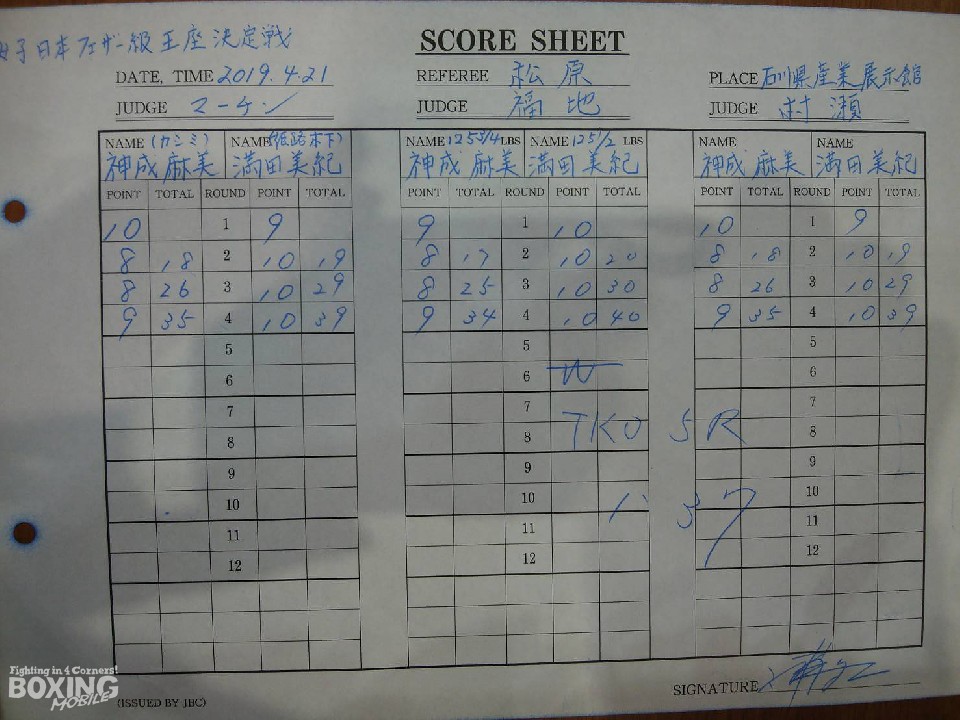 女子日本フェザー級王座決定戦
SCORE SHEET
DATE, TIME 2019.4.21 REFEREE 松原 PLACE 石川県産業展示館
JUDGE マーチン JUDGE 福地 JUDGE 村瀬
NAME (カシミ) NAME (姫路木下) NAME 125 3/4 LBS NAME 125 1/2 LBS NAME NAME
神成麻美 満田美紀 神成麻美 満田美紀 神成麻美 満田美紀
POINT TOTAL ROUND POINT TOTAL POINT TOTAL ROUND POINT TOTAL POINT TOTAL ROUND POINT TOTAL
10 1 9 9 1 10 10 1 9
8 18 2 10 19 8 17 2 10 20 8 18 2 10 19
8 26 3 10 29 8 25 3 10 30 8 26 3 10 29
9 35 4 10 39 9 34 4 10 40 9 35 4 10 39
5 5 5
6 6 W 6
7 7 7
8 8 TKO 5R 8
9 9 9
10 10 1'37" 10
11 11 11
12 12 12
Fighting in 4 Corners!
BOXING
MOBILE
(ISSUED BY JBC) SIGNATURE